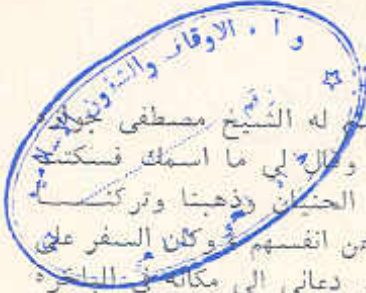 و ا . الاوقاف والشئون
له الشيخ مصطفى جواد
وقال لي ما اسمك فسكتت
الحنيان وذهبنا وتركنا
من انفسهم وكان السفر على
دعاني الى مكانه في الباخرة